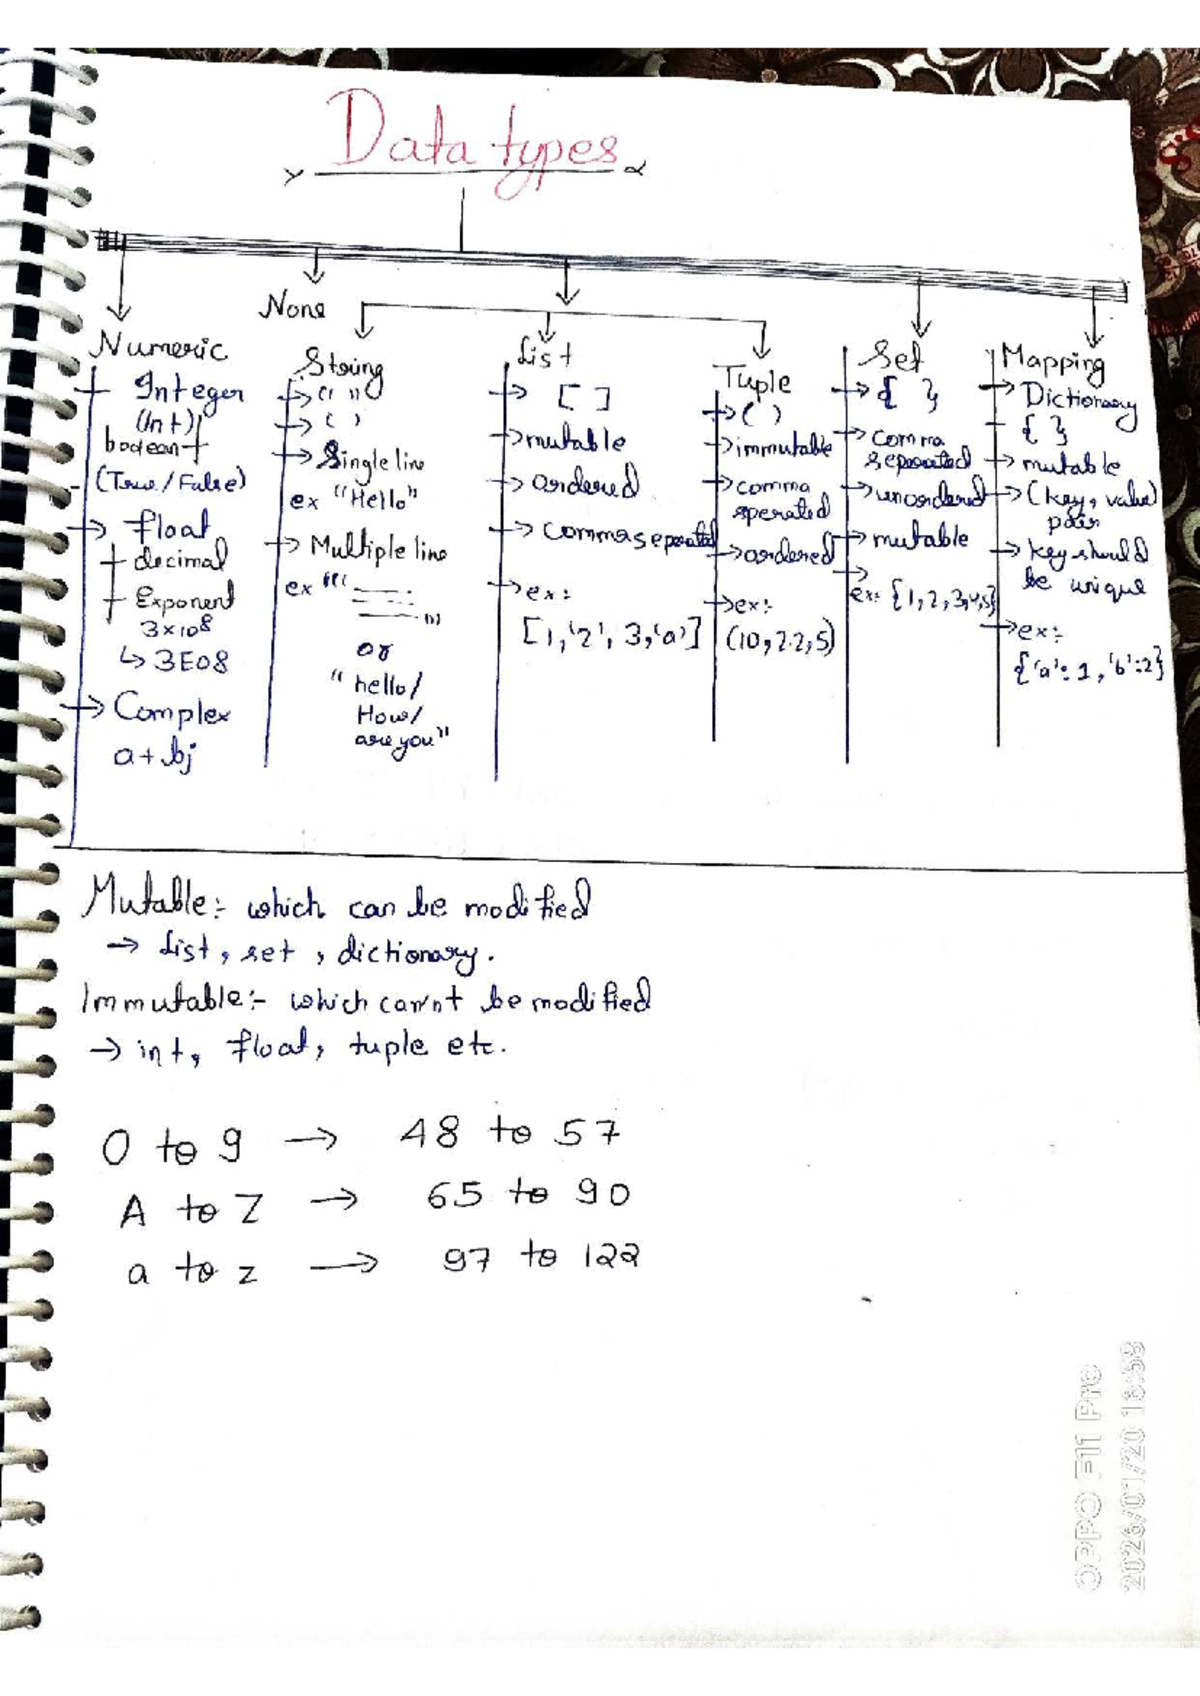 Data types
None
Numeric
Integer
(Int)
boolean
(True/False)
float
decimal
Exponent
3×10⁸
↳ 3E08
→ Complex
a+bj
String
→ " "
→ ' '
→ Single line
ex "Hello"
→ Multiple line
ex "'
"'
or
"hello/
How/
are you"
List
→ [ ]
→ mutable
→ ordered
→ comma seperated
→ ex:
[1, '2', 3, 'a']
Tuple
→ ( )
→ immutable
→ comma
seperated
→ ordered
→ ex:-
(10, 2.2, 5)
Set
→ { }
→ comma
seperated
→ unordered
→ mutable
→
ex: {1, 2, 3, 4, 5}
Mapping
→ Dictionary
{ }
→ mutable
→ (key, value)
pair
→ key should
be unique
→ ex:-
{'a': 1, 'b': 2}
Mutable:- which can be modified
→ List, set, dictionary.
Immutable:- which can'nt be modified
→ int, float, tuple etc.
0 to 9 → 48 to 57
A to Z → 65 to 90
a to z → 97 to 122
OPPO F11 Pro
2026/01/20 16:58